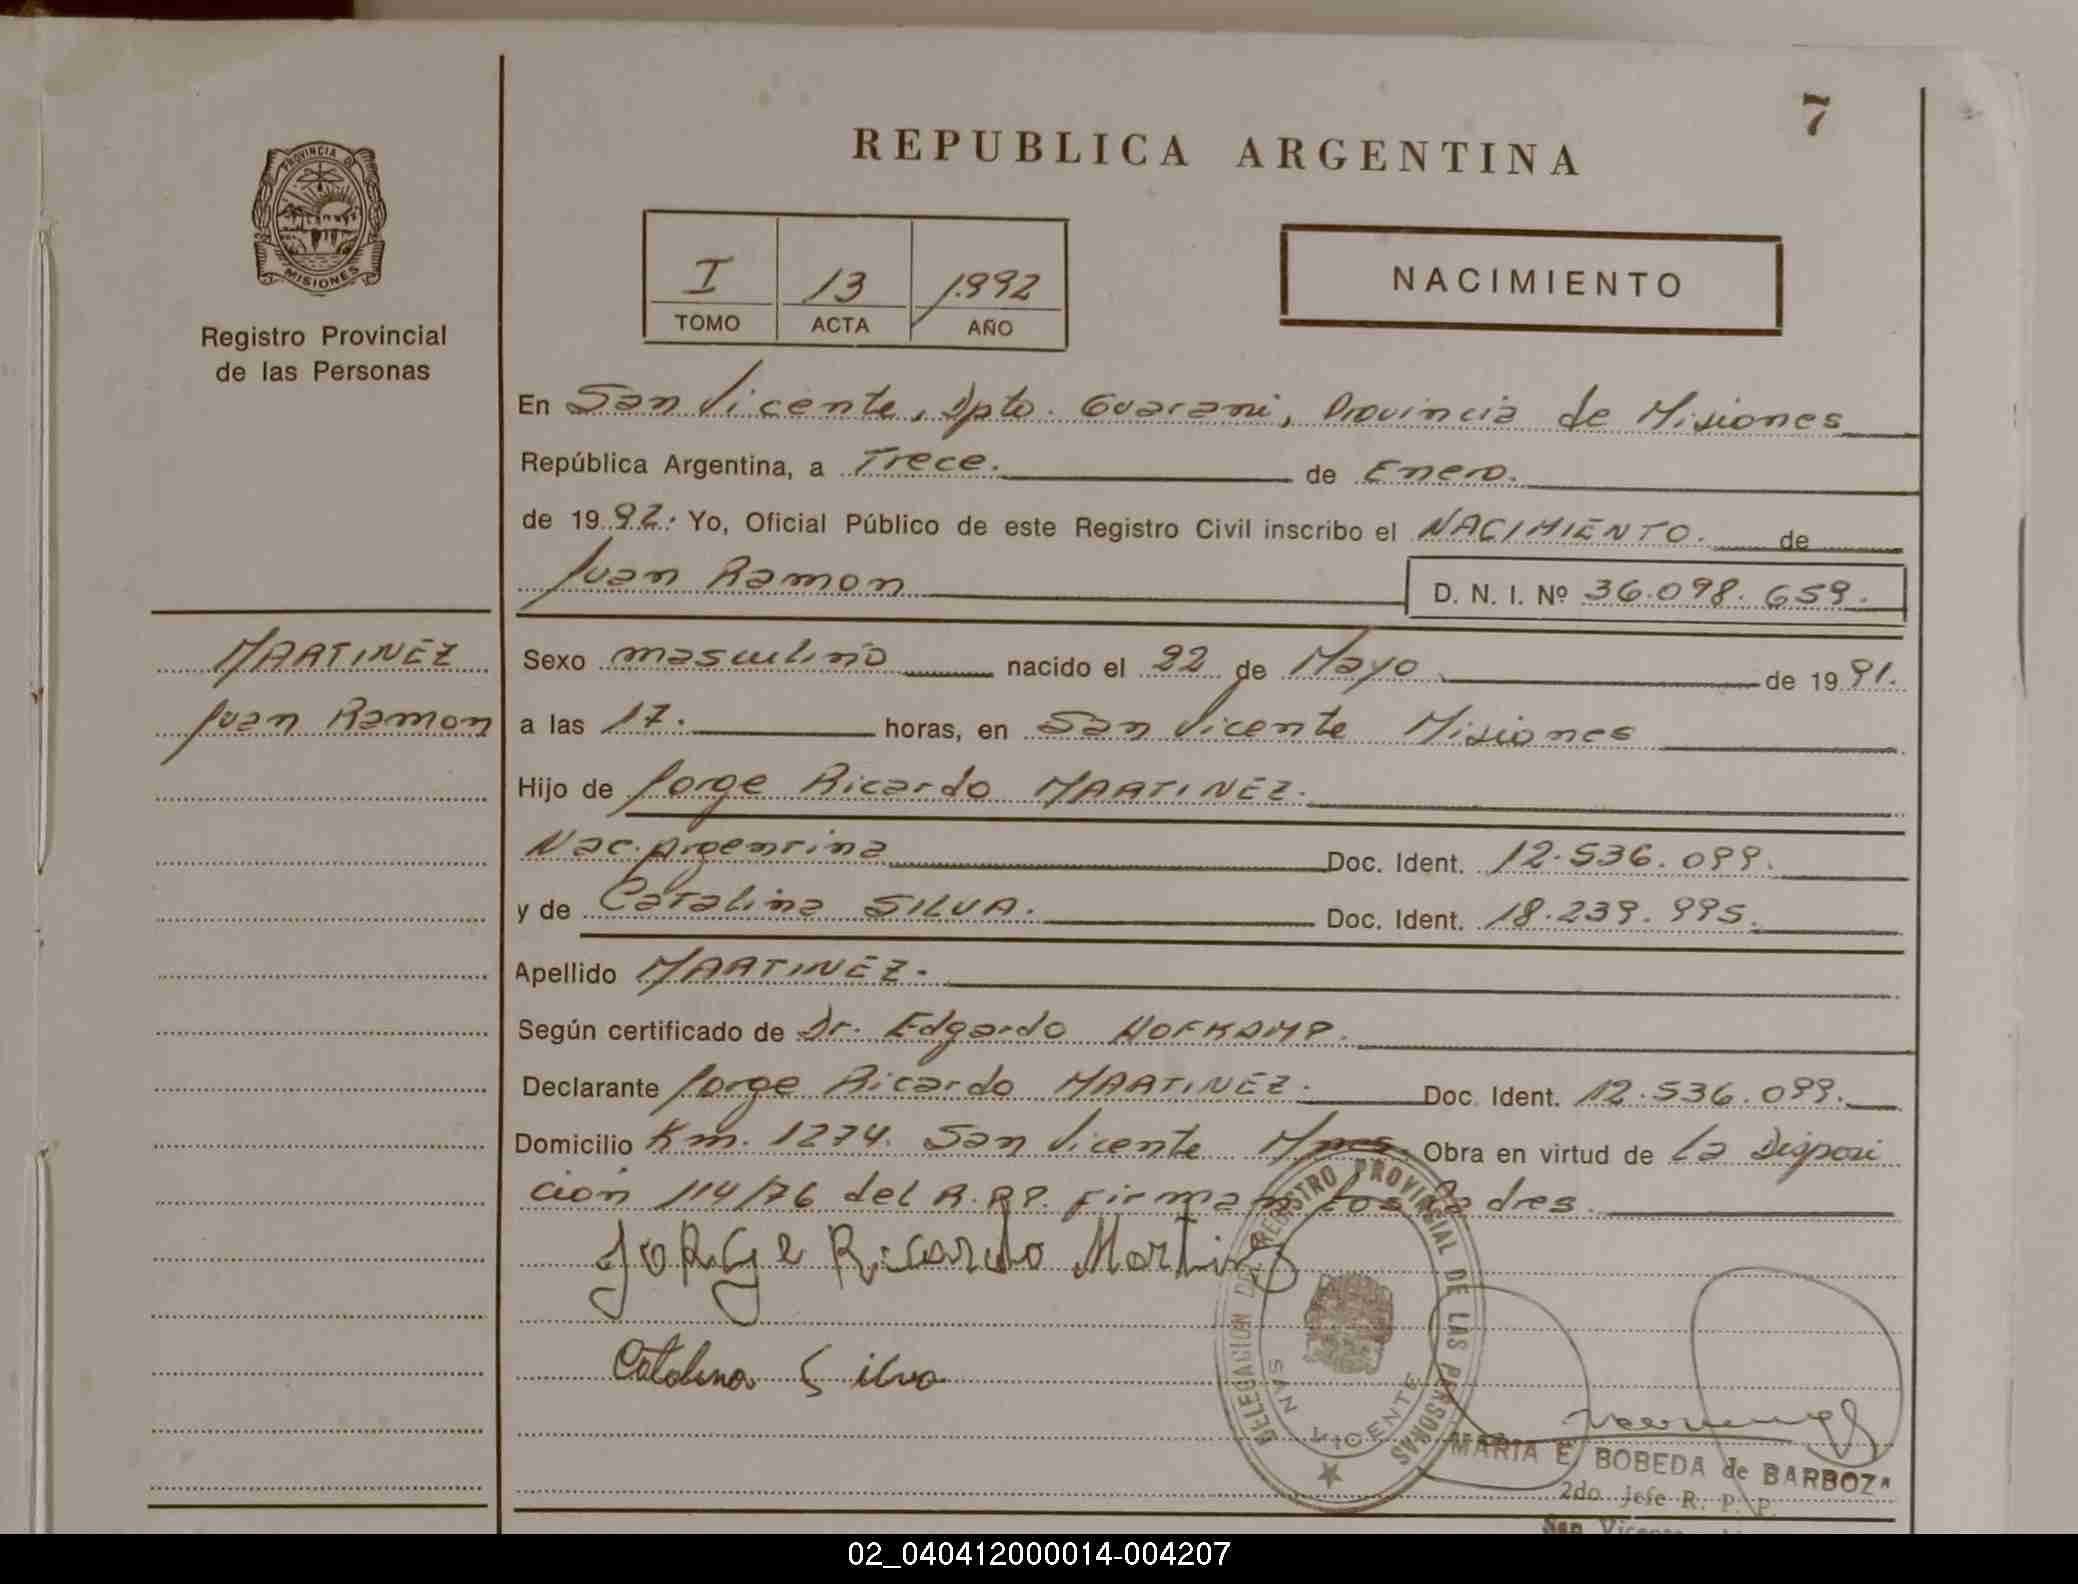 7
REPUBLICA ARGENTINA
PROVINCIA DE
MISIONES
Registro Provincial
de las Personas
I 13 1992
TOMO ACTA AÑO
NACIMIENTO
En San Vicente, Dpto. Guarani, Provincia de Misiones
República Argentina, a Trece. de Enero.
de 1992. Yo, Oficial Público de este Registro Civil inscribo el NACIMIENTO. de
Juan Ramon D. N. I. Nº 36.098.659.
MARTINEZ
Juan Ramon
Sexo masculino nacido el 22 de Mayo de 1991.
a las 17. horas, en San Vicente Misiones
Hijo de Jorge Ricardo MARTINEZ.
Nac. Argentina Doc. Ident. 12.536.099.
y de Catalina SILVA. Doc. Ident. 18.239.995.
Apellido MARTINEZ.
Según certificado de Dr. Edgardo HOFKAMP.
Declarante Jorge Ricardo MARTINEZ. Doc. Ident. 12.536.099.
Domicilio Km. 1274. San Vicente Mnes. Obra en virtud de la Disposi
ción 114/76 del R.P.P. Firman los Padres.
JORGe Ricardo Martinez
Catalina Silva
DELEGACION DEL REGISTRO PROVINCIAL DE LAS PERSONAS
SAN VICENTE
MARIA E. BOBEDA de BARBOZA
2do. Jefe R. P. P.
San
02_040412000014-004207